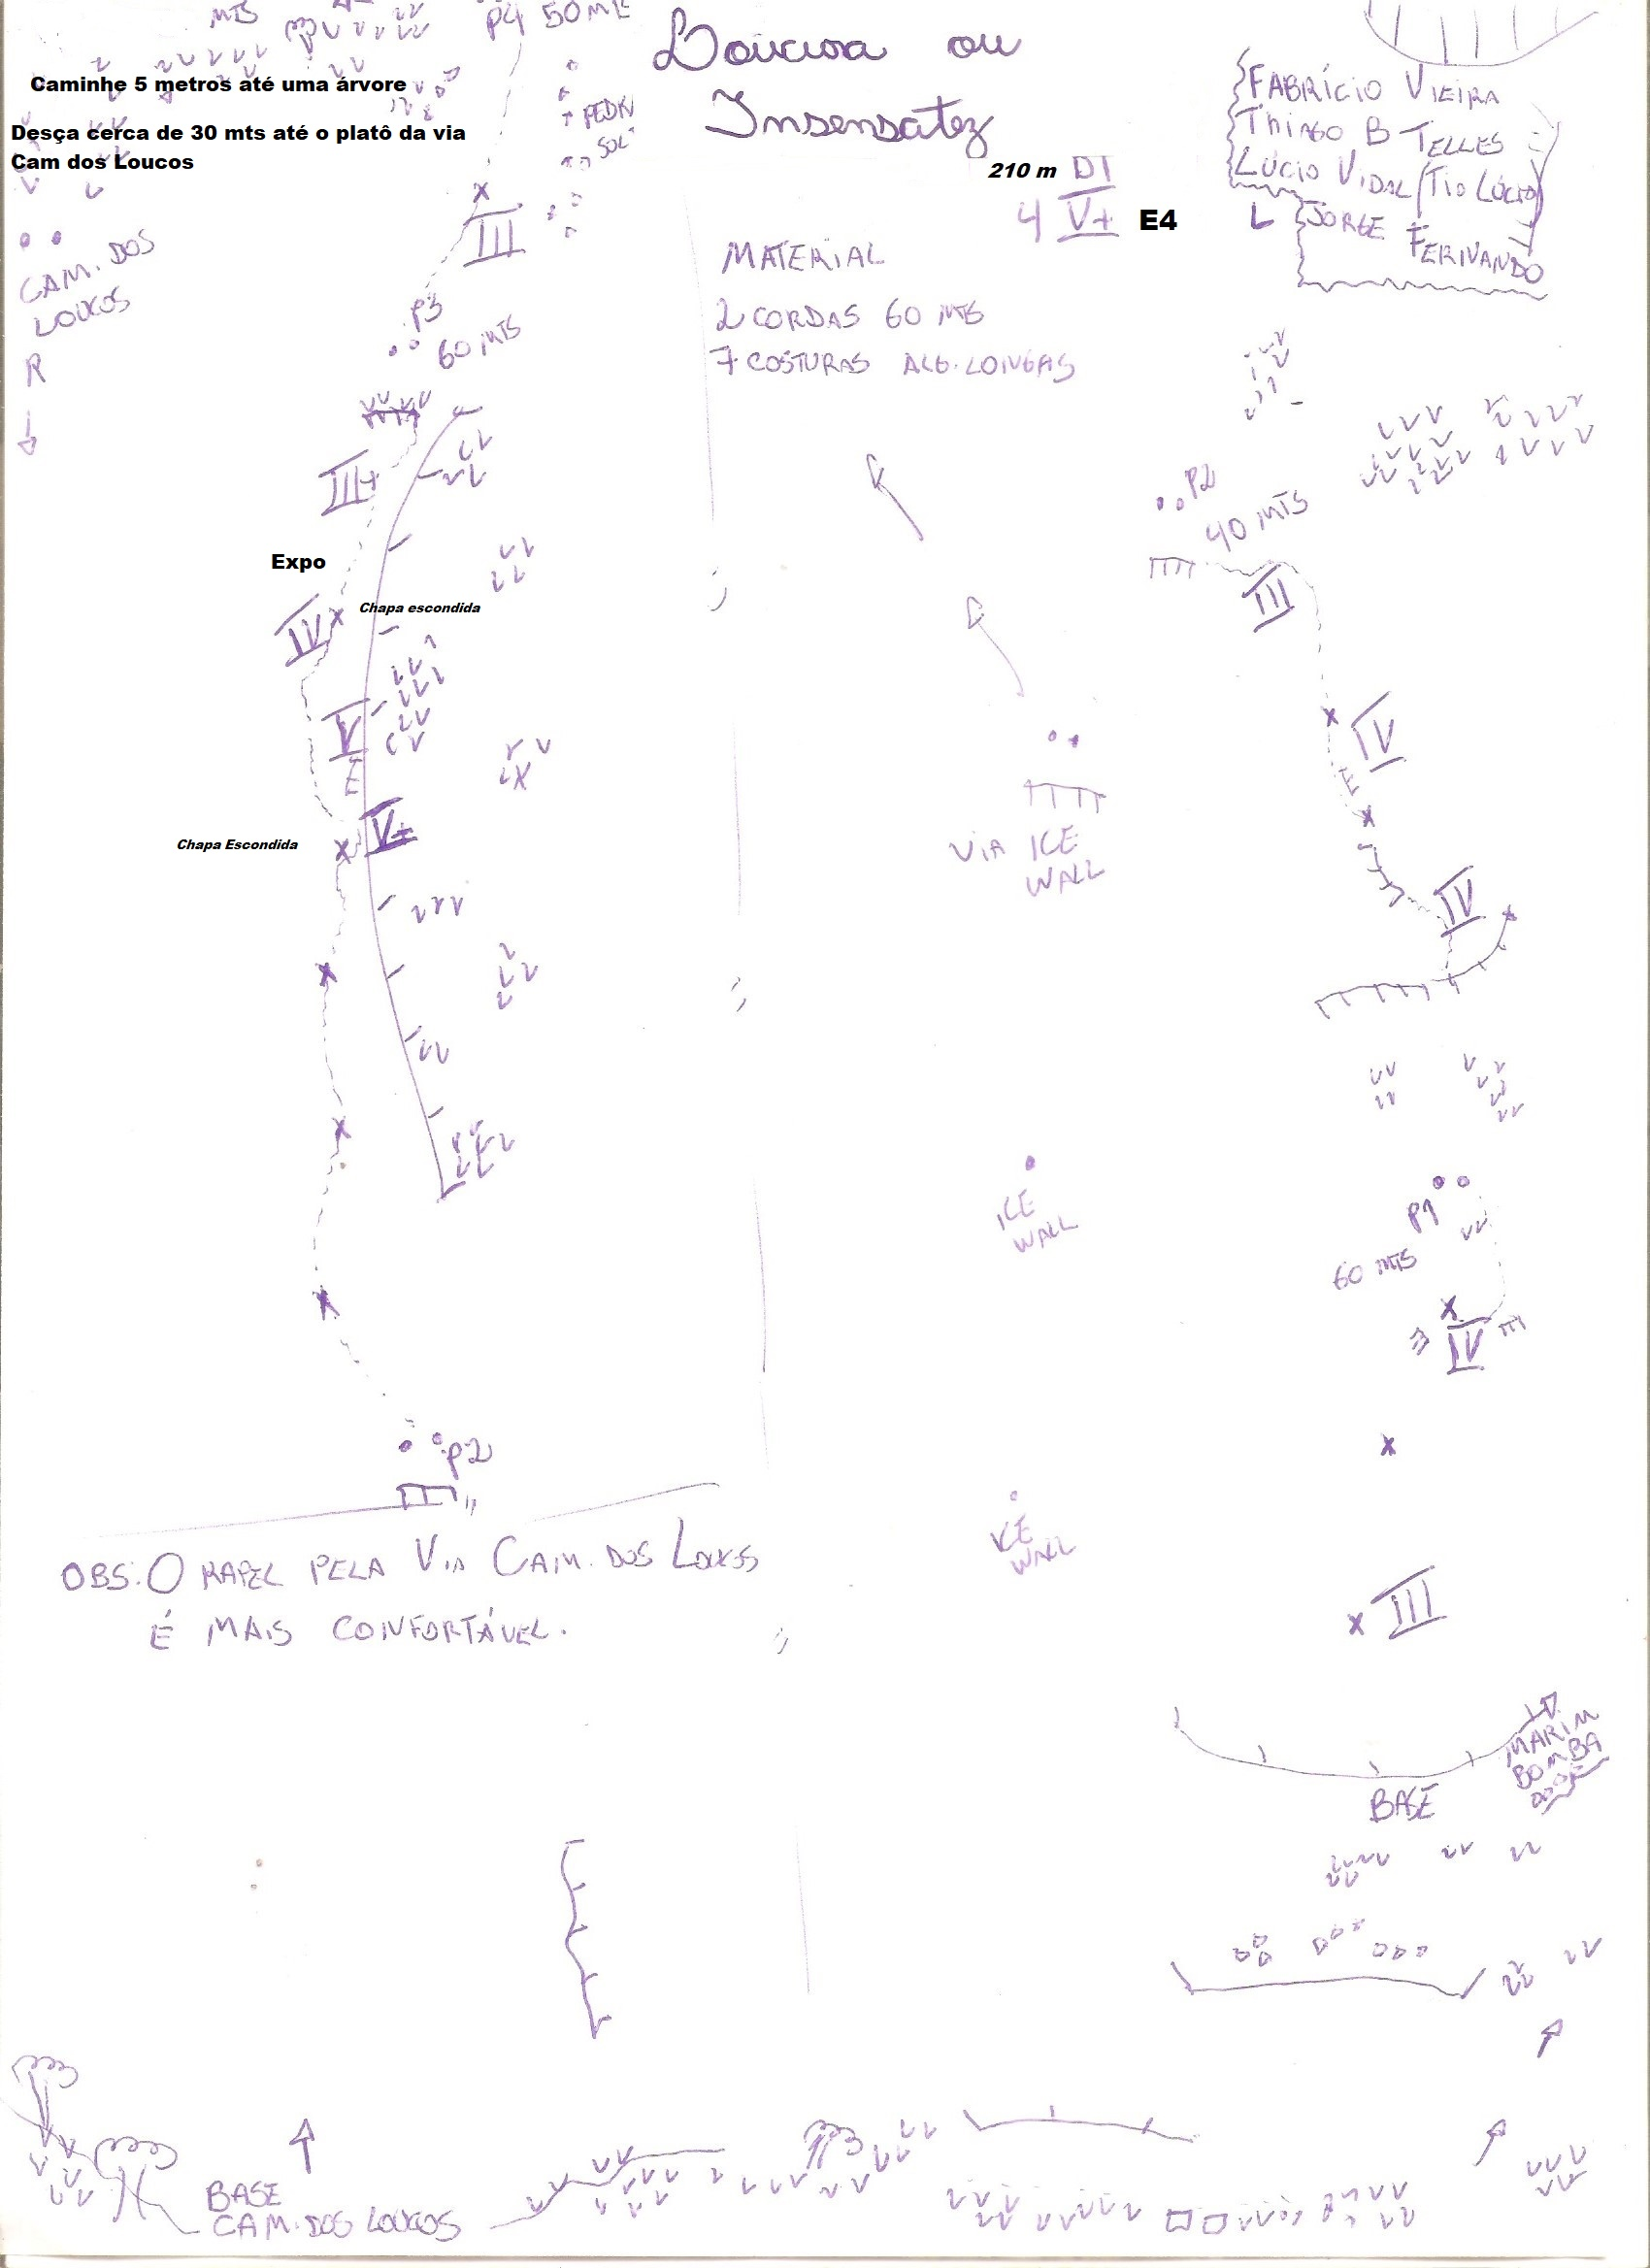 MTS
P4 50 M
Loucura ou
Insensatez
Caminhe 5 metros até uma árvore
Desça cerca de 30 mts até o platô da via
Cam dos Loucos
FABRÍCIO VIEIRA
THIAGO B TELLES
LÚCIO VIDAL (TIO LÚCIO)
L JORGE FERNANDO
210 m D1
4 V+ E4
III
CAM. DOS
LOUCOS
R
MATERIAL
2 CORDAS 60 MTS
7 COSTURAS ALG. LONGAS
P3
60 MTS
III+
Expo
Chapa escondida
IV
V
E
V+
Chapa Escondida
P2
P2
40 MTS
III
IV
E
IV
VIA ICE
WALL
ICE
WALL
P1
60 MTS
IV
ICE
WALL
III
OBS: O RAPEL PELA VIA CAM. DOS LOUCOS
É MAIS CONFORTÁVEL.
MARIM
BOMBA
BASE
BASE
CAM. DOS LOUCOS